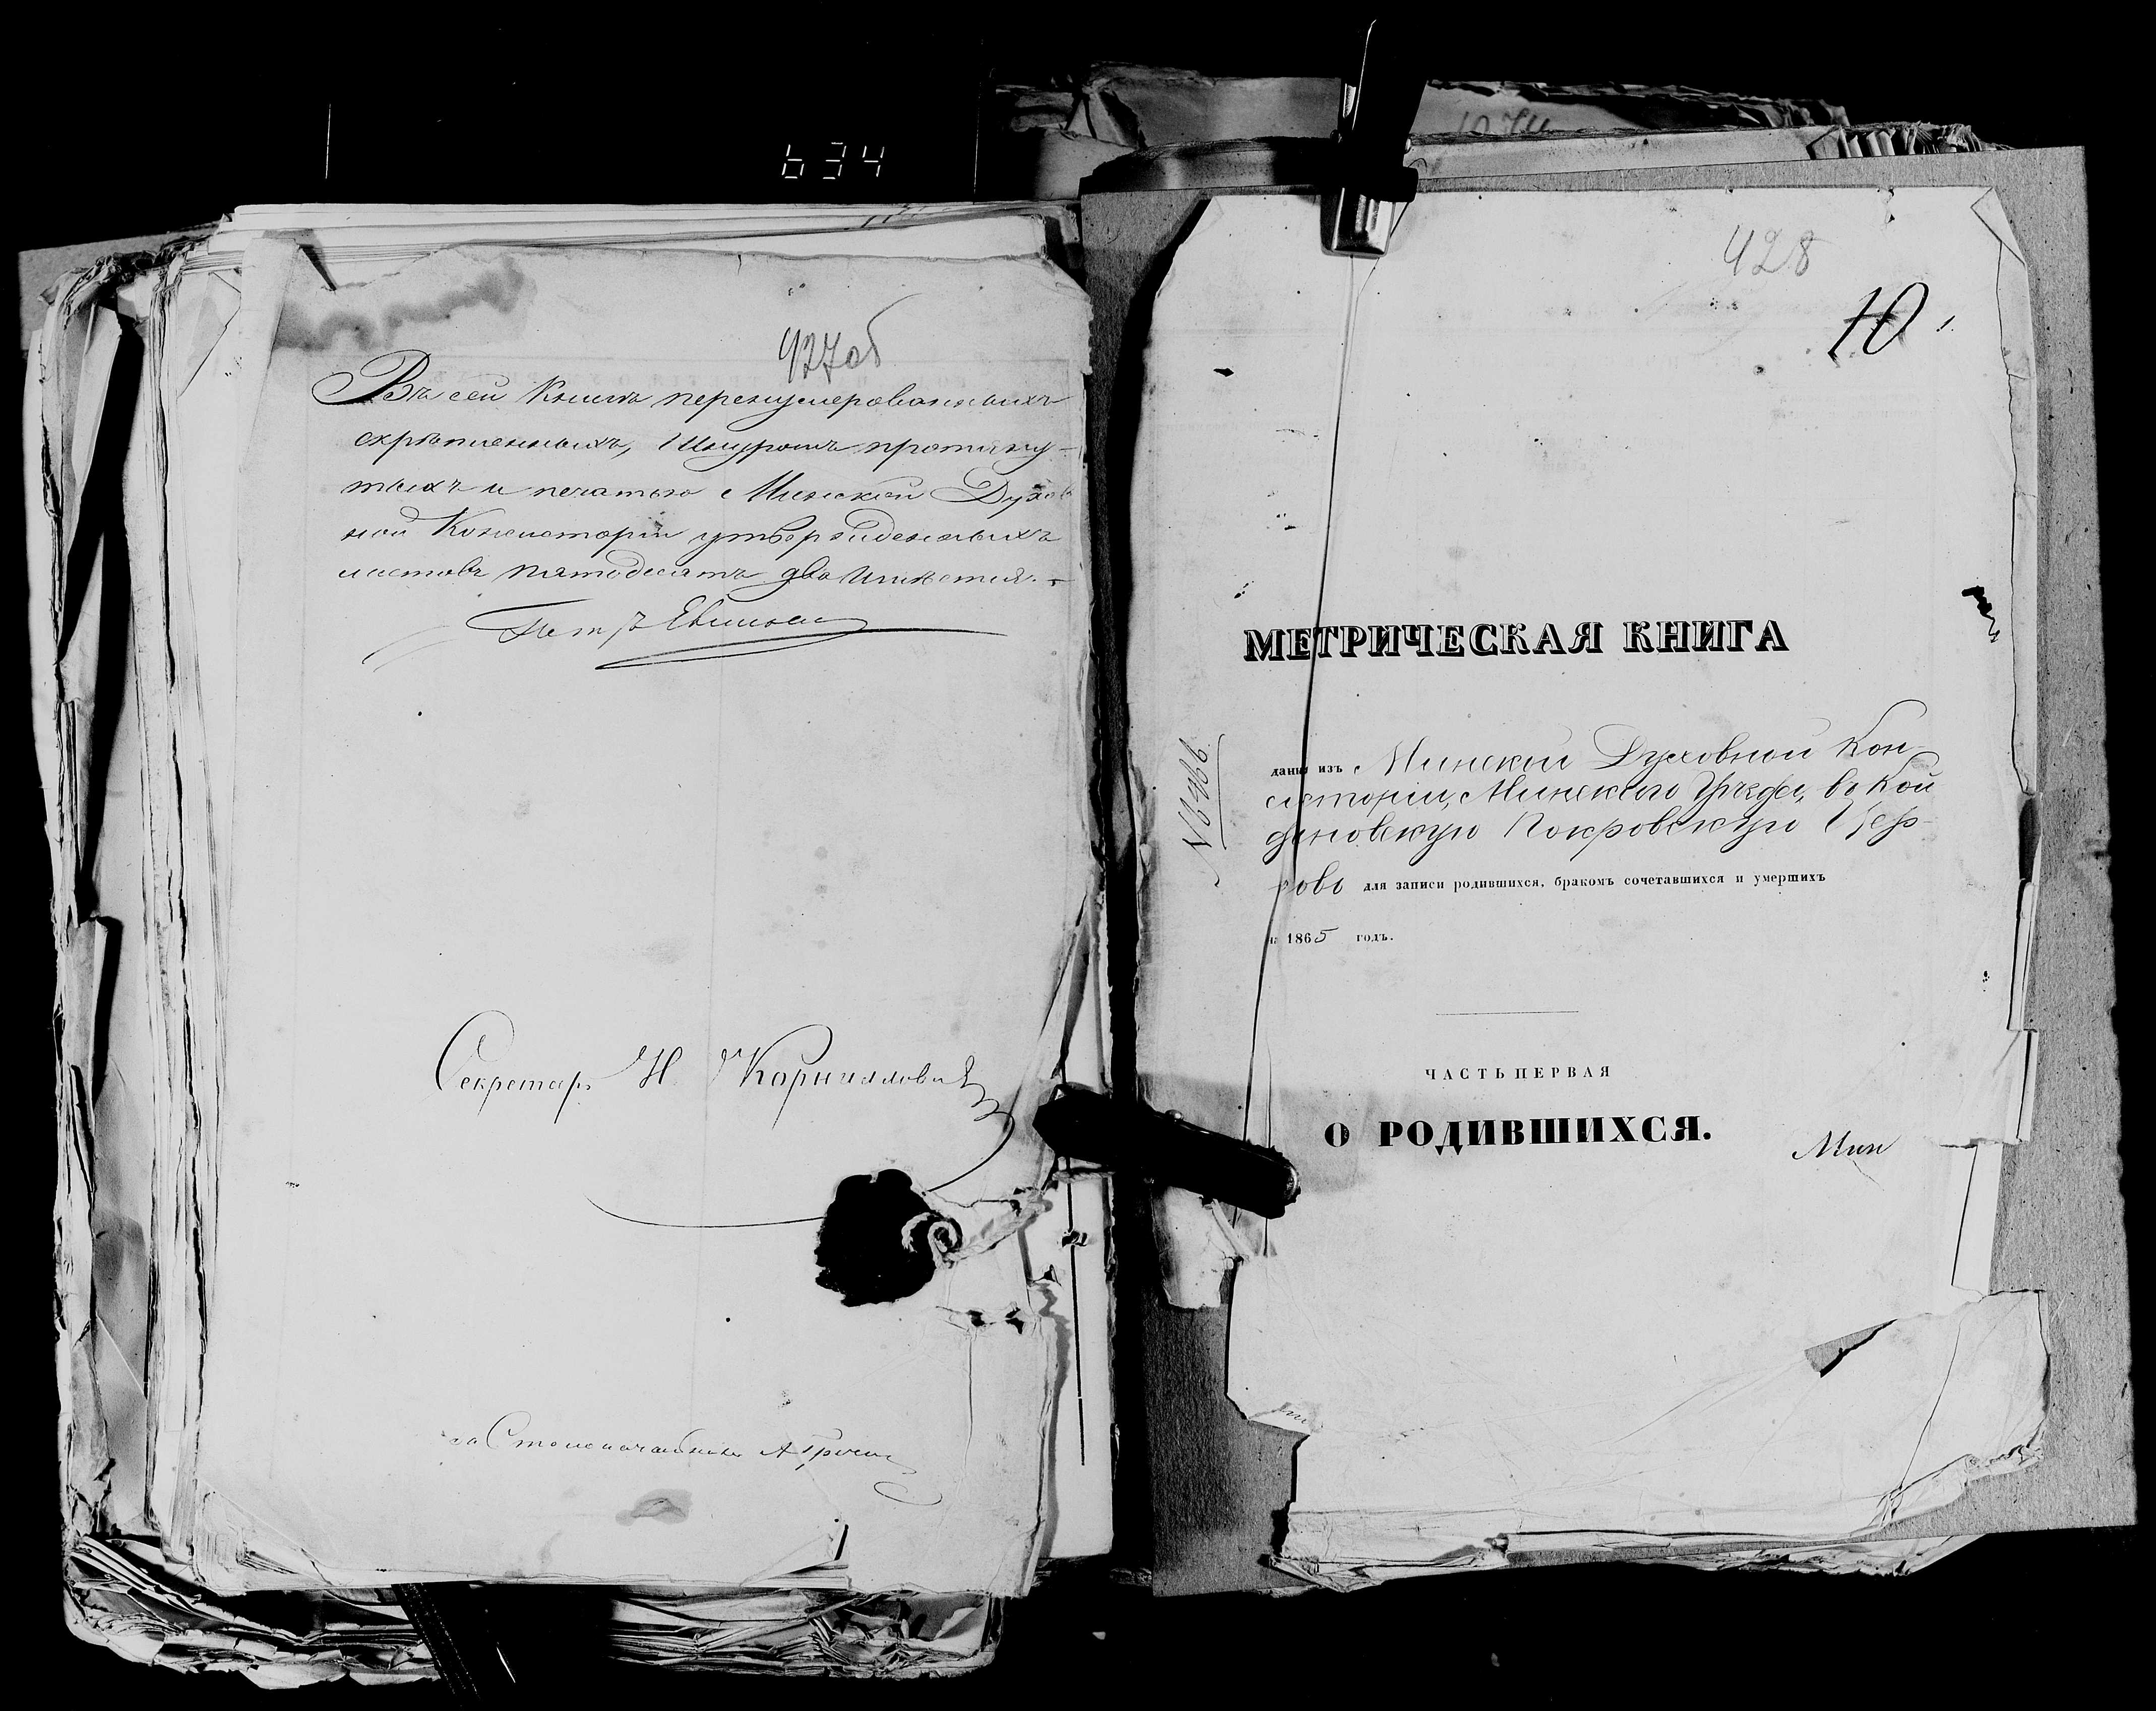 634
427об
Въ сей Книгѣ перенумерованныхъ
скрѣпленныхъ, Шнуромъ протяну-
тыхъ и печатью Минской Духов
ной Консисторіи утвержденныхъ
листовъ пятьдесятъ два
Петръ
Секретарь Н Корниловичъ
за Столоначальника А
428
10
МЕТРИЧЕСКАЯ КНИГА
данная изъ Минской Духовной Кон
систоріи, Минскаго Уѣзда, въ Кой
дановскую Покровскую Цер
ковь для записи родившихся, бракомъ сочетавшихся и умершихъ
на 1865 годъ.
ЧАСТЬ ПЕРВАЯ
О РОДИВШИХСЯ.
Мин